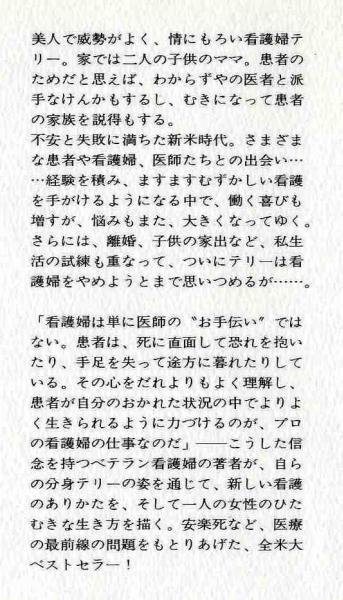 美人で威勢がよく、情にもろい看護婦テ
リー。家では二人の子供のママ。患者の
ためだと思えば、わからずやの医者と派
手なけんかもするし、むきになって患者
の家族を説得もする。
不安と失敗に満ちた新米時代。さまざま
な患者や看護婦、医師たちとの出会い…
…経験を積み、ますますむずかしい看護
を手がけるようになる中で、働く喜びも
増すが、悩みもまた、大きくなってゆく。
さらには、離婚、子供の家出など、私生
活の試練も重なって、ついにテリーは看
護婦をやめようとまで思いつめるが……。
「看護婦は単に医師の〝お手伝い〟では
ない。患者は、死に直面して恐れを抱い
たり、手足を失って途方に暮れたりして
いる。その心をだれよりもよく理解し、
患者が自分のおかれた状況の中でよりよ
く生きられるように力づけるのが、プロ
の看護婦の仕事なのだ」──こうした信
念を持つベテラン看護婦の著者が、自ら
の分身テリーの姿を通じて、新しい看護
のありかたを、そして一人の女性のひた
むきな生き方を描く。安楽死など、医療
の最前線の問題をもとりあげた、全米大
ベストセラー！